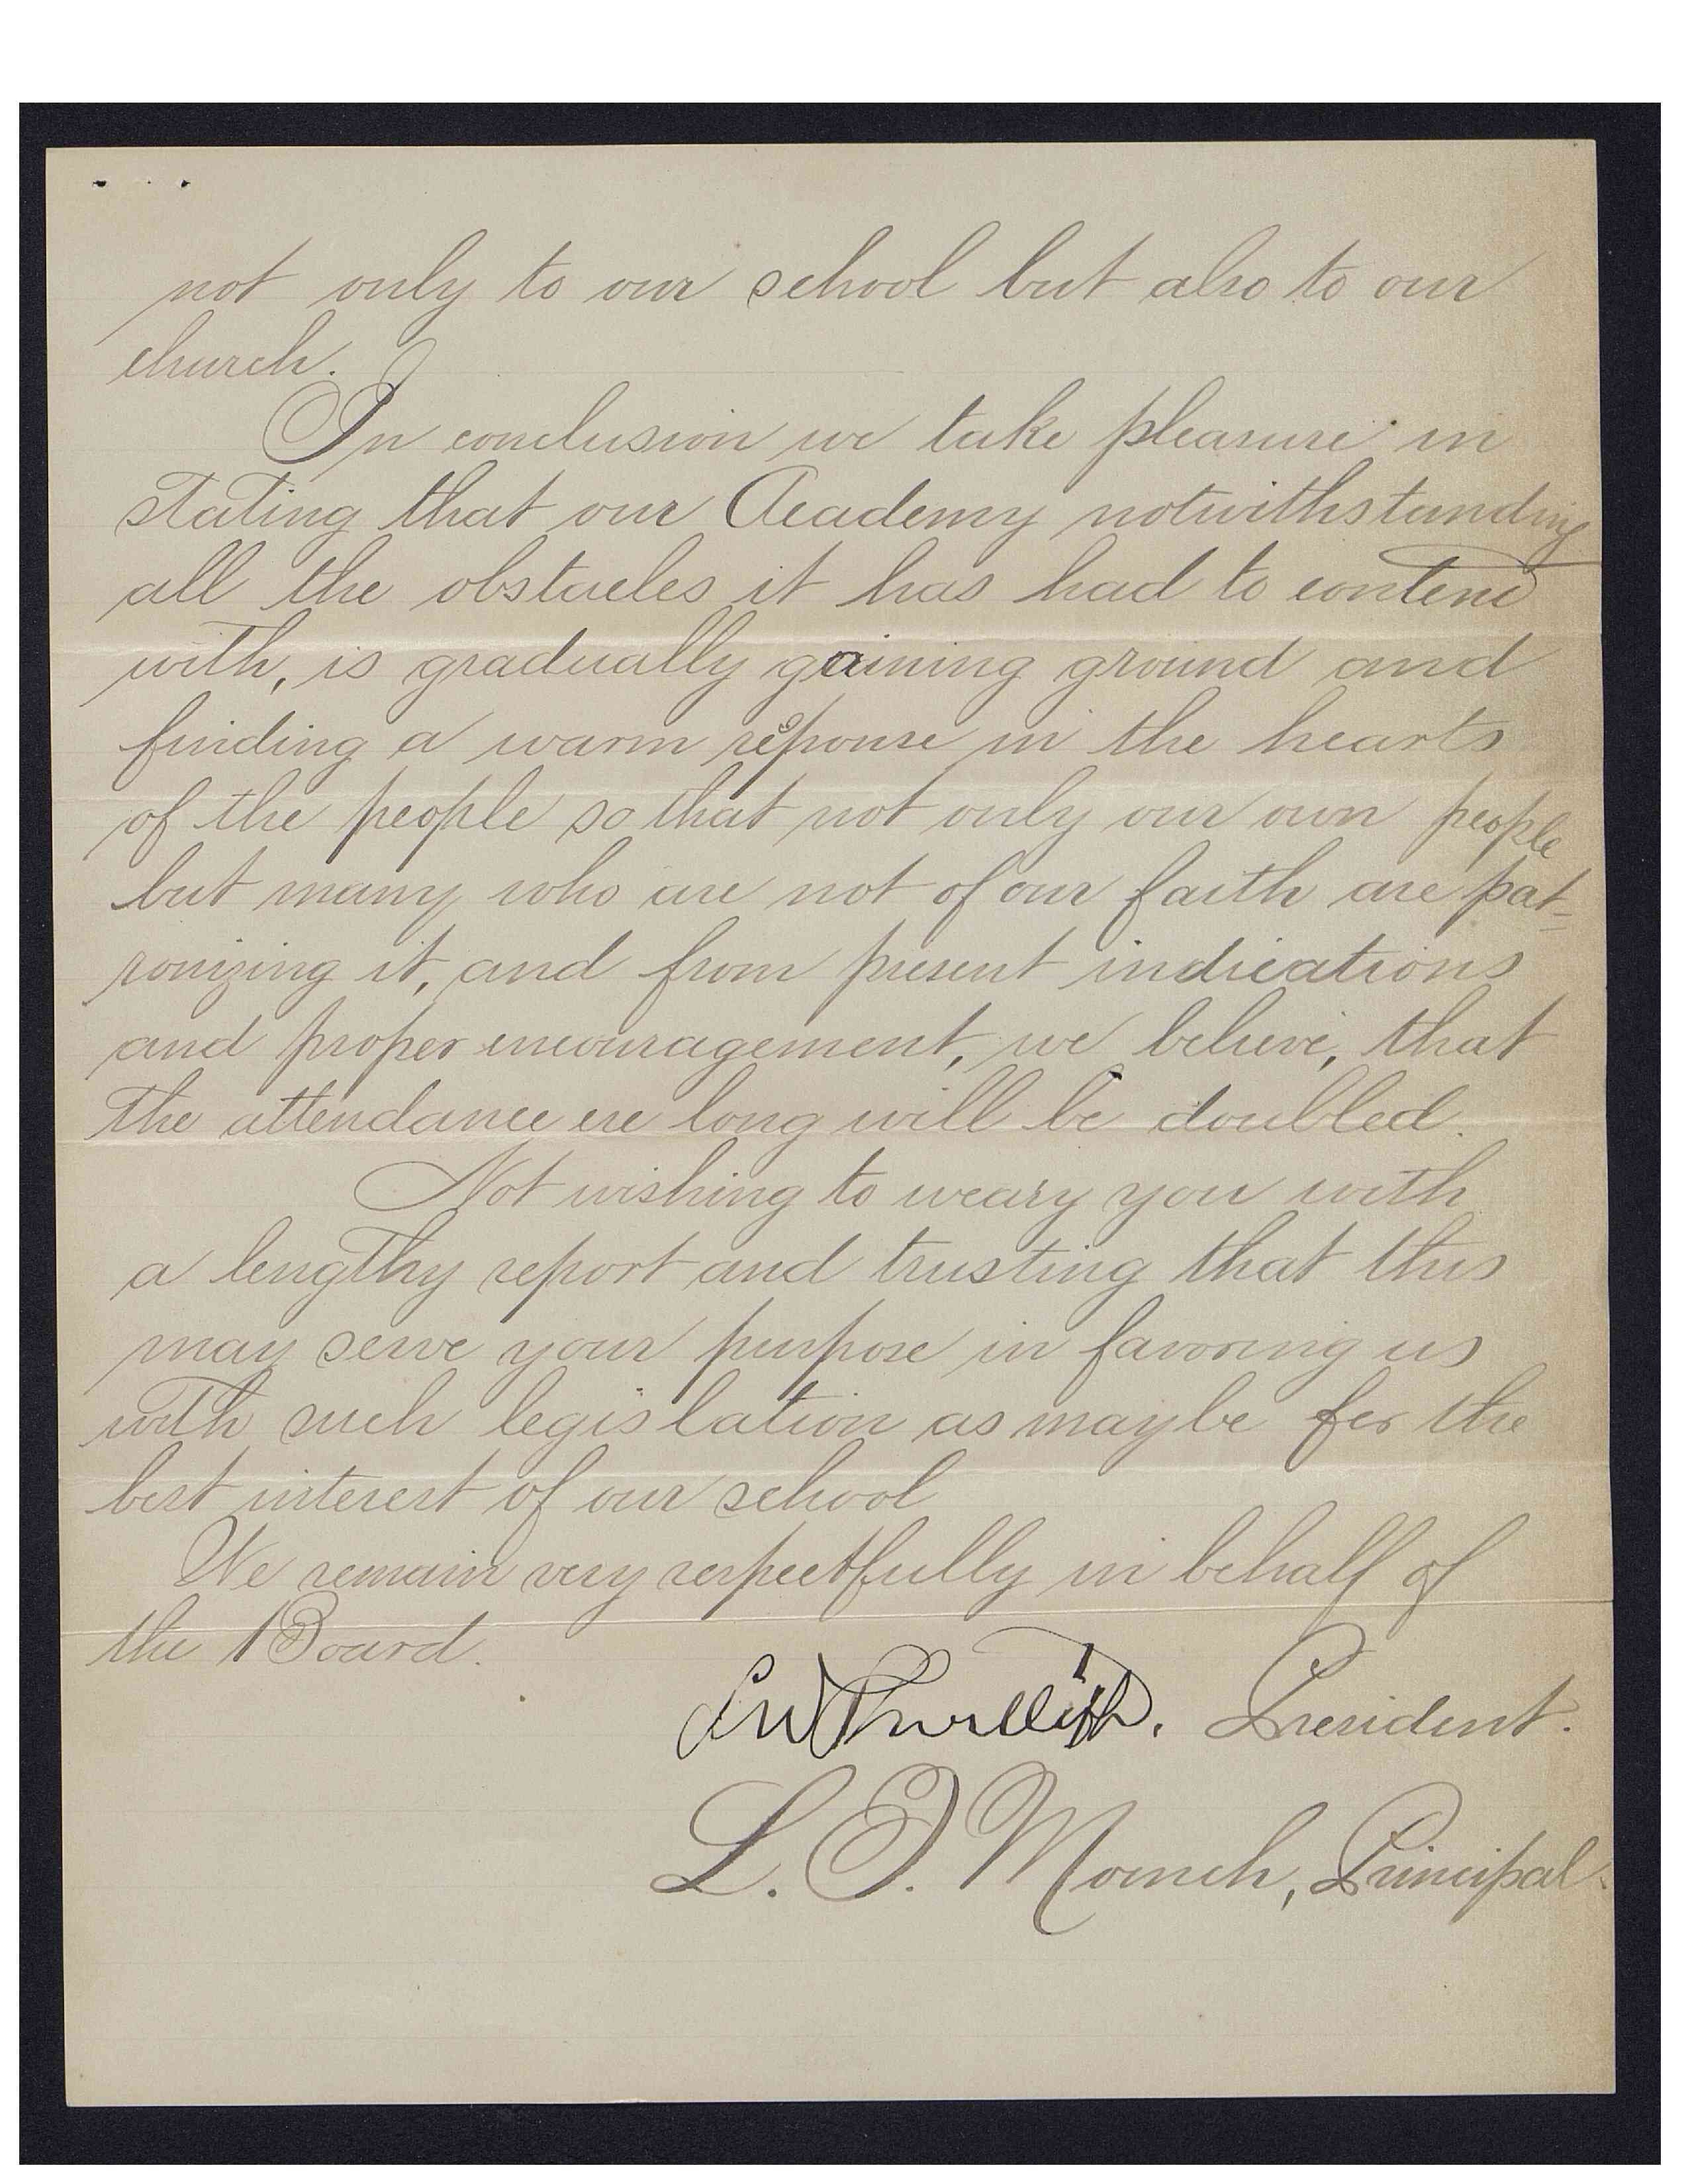 not only to our school but also to our
church.
In conclusion we take pleasure in
stating that our Academy notwithstanding
all the obstacles it has had to contend
with, is gradually gaining ground and
finding a warm response in the hearts
of the people so that not only our own people
but many who are not of our faith are pat=
ronizing it, and from present indications
and proper encouragement, we believe, that
the attendance ere long will be doubled.
Not wishing to weary you with
a lengthy report and trusting that this
may serve your purpose in favoring us
with such legislation as may be for the
best interest of our school
We remain very respectfully in behalf of
the Board.
L W Shurtliff. President.
L. F. Moench, Principal.